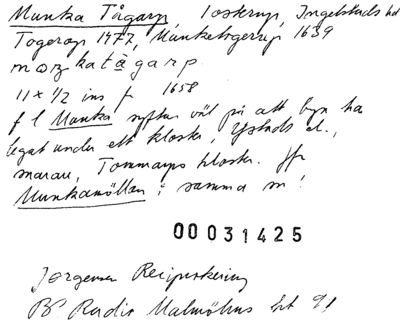 Munka Tågarp, Tosterup, Ingelstads hd
Togerop 1477, Munketogerup 1639
mozkatàgarp
11 x 1/2 ins fr 1658
f l Munka syftar väl på att byn ha
legat under ett kloster, Ystads el.,
snarare, Tommarps kloster. Jfr
Munkamöllan i samma sn!
00031425
Jørgensen Reciprokering
Malmöhus